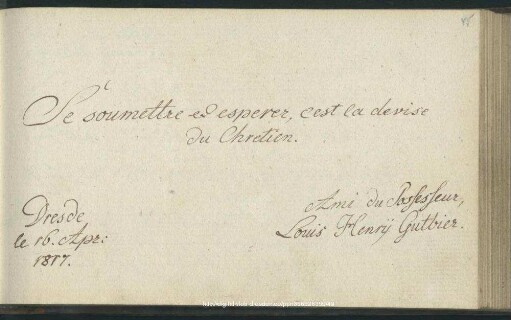 Se soumettre et esperer, c'est la devise
du Chretien.
Ami du Possesseur,
Louis Henry Gutbier.
Dresde
le 16. Apr:
1817.